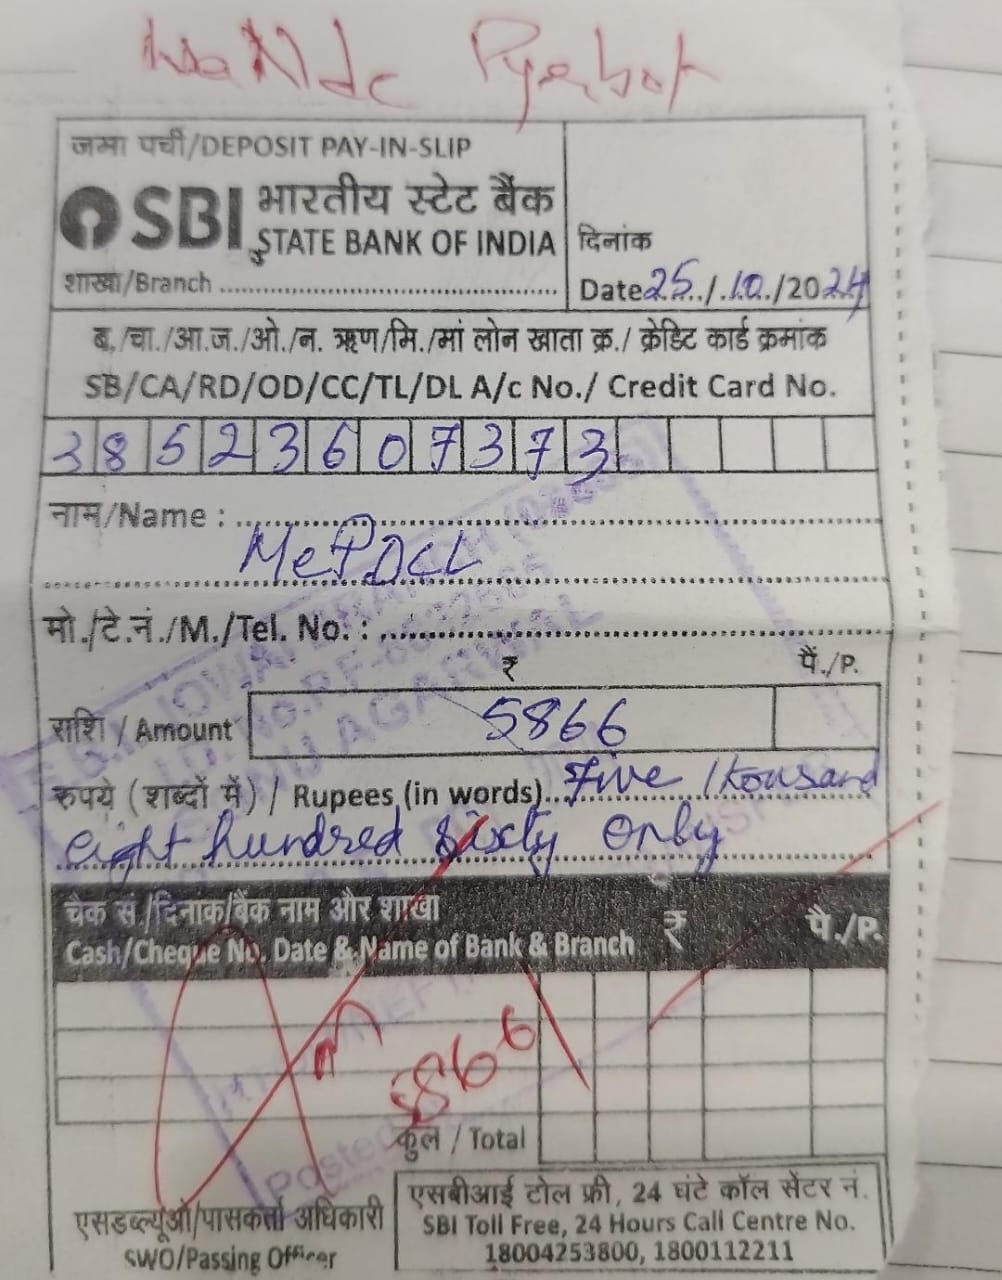 जमा पर्ची/DEPOSIT PAY-IN-SLIP
SBI भारतीय स्टेट बैंक
STATE BANK OF INDIA
शाखा/Branch
दिनांक
Date 25/10/2024
ब./चा./आ.ज./ओ./न. ऋण/मि./मां लोन खाता क्र./ क्रेडिट कार्ड क्रमांक
SB/CA/RD/OD/CC/TL/DL A/c No./ Credit Card No.
38523607373
नाम/Name :
MePDCL
मो./टे.नं./M./Tel. No. :
₹ पै./P.
राशि / Amount 5866
रुपये (शब्दों में) / Rupees (in words) Five Thousand
eight hundred sixty only
चैक सं./दिनाक/बैंक नाम और शाखा ₹ पै./P.
Cash/Cheque No. Date & Name of Bank & Branch
5866
कुल / Total
एसडब्ल्यूओ/पासकर्ता अधिकारी
SWO/Passing Officer
एसबीआई टोल फ्री, 24 घंटे कॉल सेंटर नं.
SBI Toll Free, 24 Hours Call Centre No.
18004253800, 1800112211